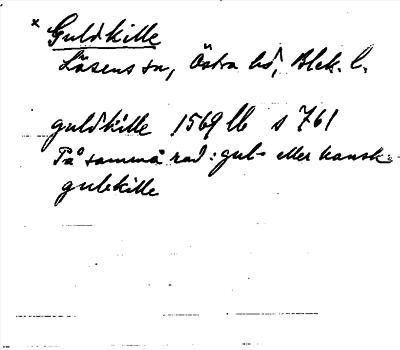 x Guldkille
Lösens sn, Östra hd, Blek. l.
guldkille 1569 lb s 761
På samma rad: gul- eller kansk-
gulekille